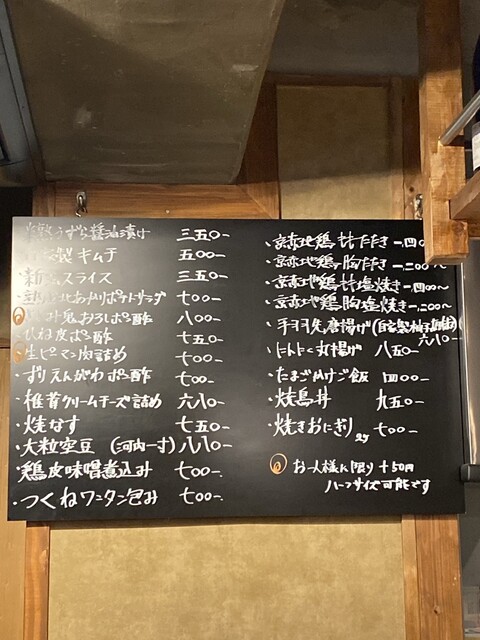 うずら醤油漬け 三五〇-
製キムチ 五〇〇-
スライス 三五〇-
ポテトサラダ 七〇〇-
鬼おろしポン酢 八〇〇-
ひね皮ポン酢 七五〇-
生ピーマン肉詰め 七〇〇-
ずりえんがわポン酢 七〇〇-
椎茸クリームチーズ詰め 六八〇-
・焼なす 七五〇-
・大粒空豆(河内一寸)八八〇-
・鶏皮味噌煮込み 七〇〇-
・つくねワンタン包み 七〇〇-
・京赤地鶏ももたたき 一、四〇〇〜
・京赤地鶏胸たたき 一、二〇〇〜
・京赤地鶏もも塩焼き 一、四〇〇〜
・京赤地鶏胸塩焼き 一、二〇〇〜
・手羽先唐揚げ(自家製柚子胡椒) 六八〇-
・にんにく丸揚げ 八五〇-
・たまごかけご飯 四〇〇-
・焼鳥丼 九五〇-
・焼きおにぎり 2ヶ 七〇〇-
お一人様に限り +50円
ハーフサイズ可能です